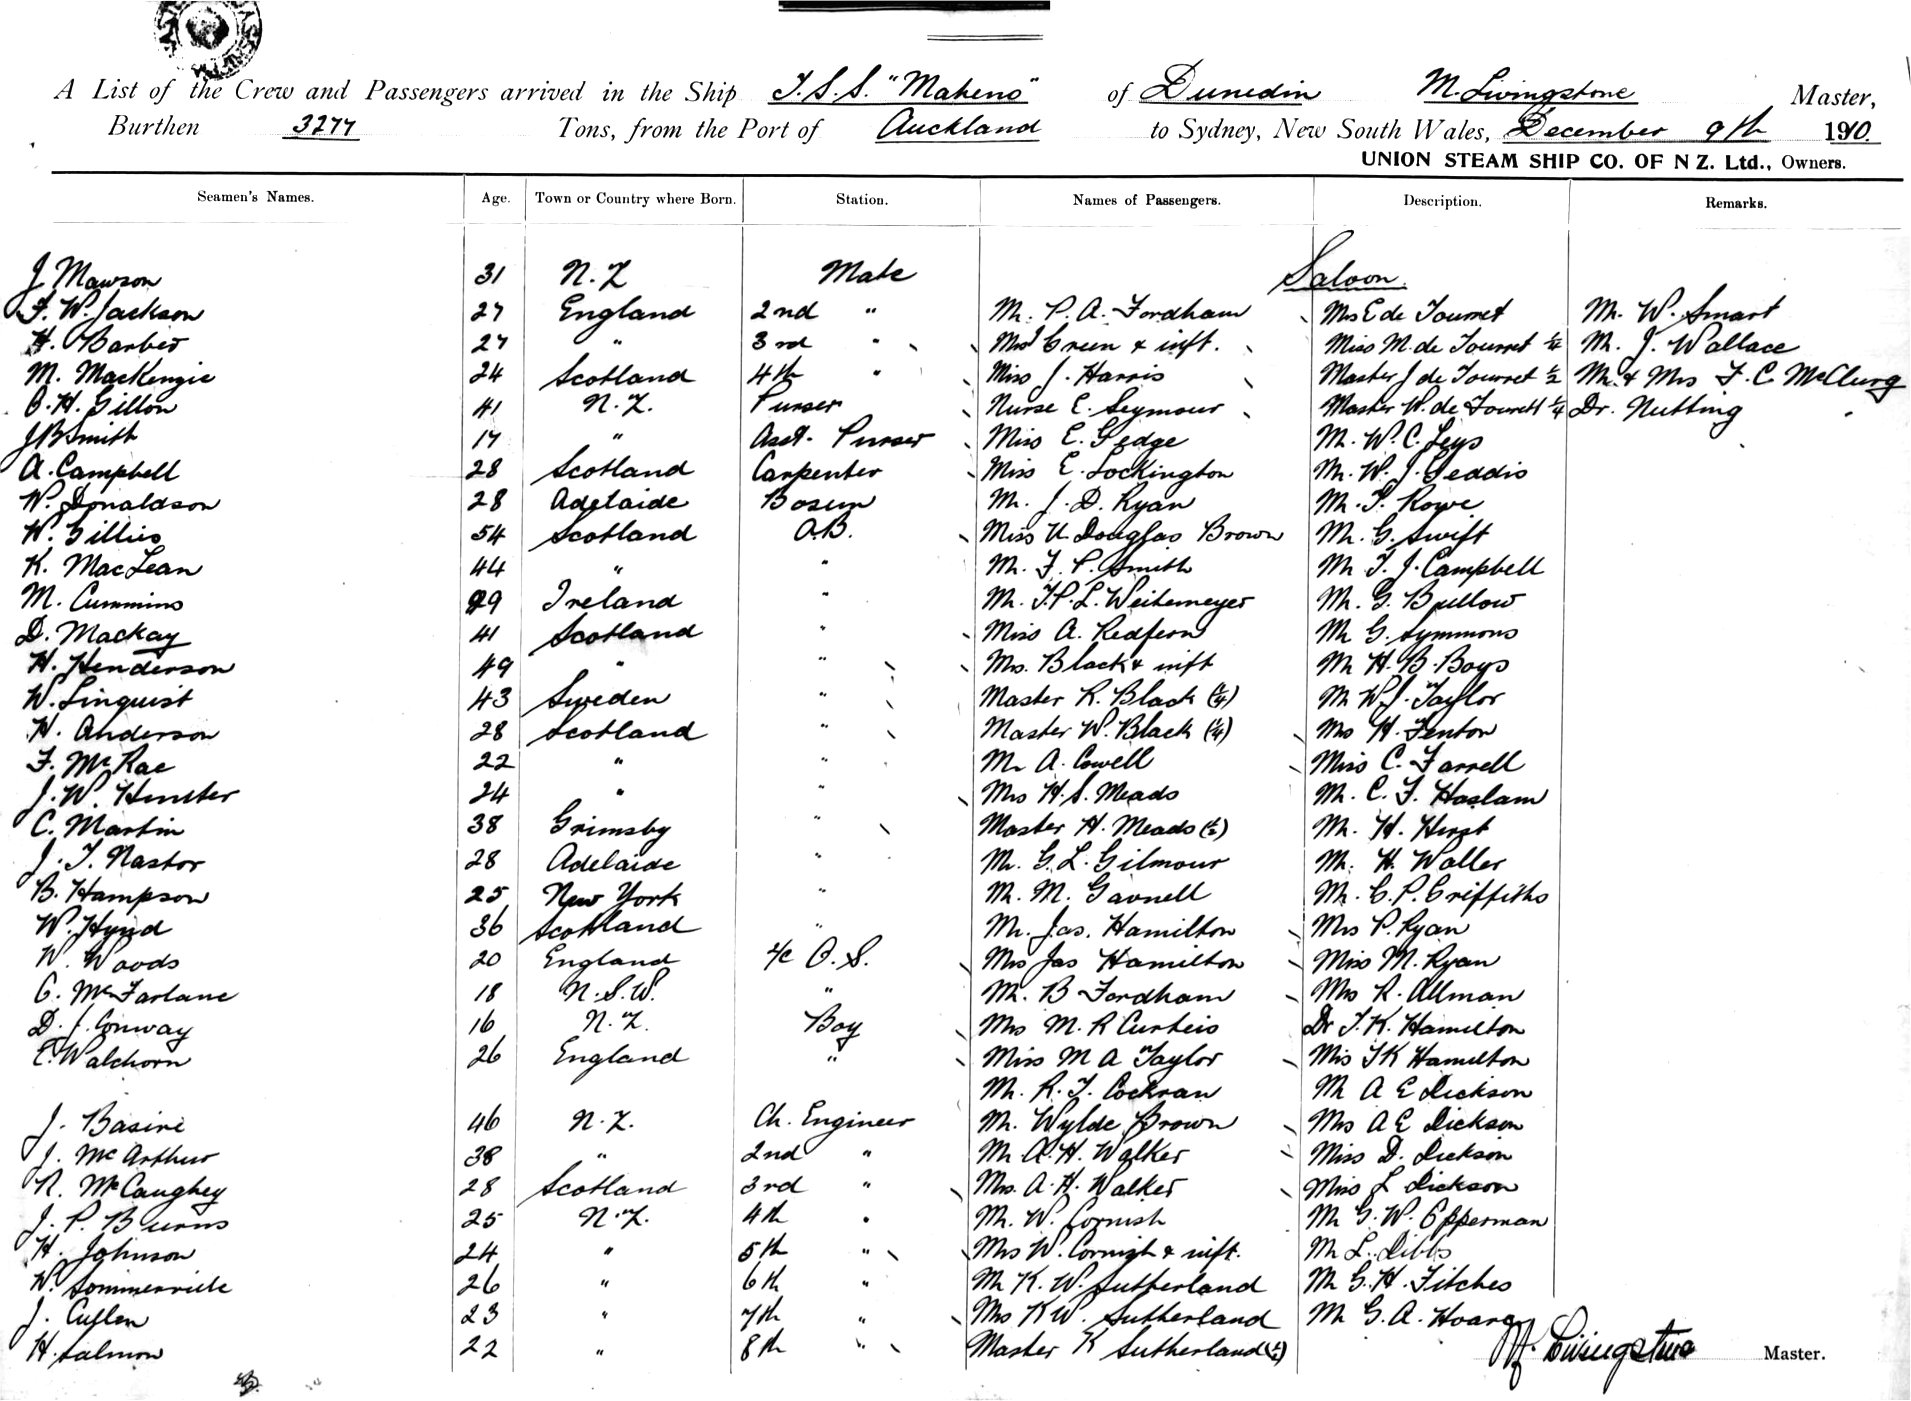 A List of the Crew and Passengers arrived in the Ship T.S.S. "Maheno" of Dunedin M. Livingstone Master,
Burthen 3277 Tons, from the Port of Auckland to Sydney, New South Wales, December 9th 1910.
UNION STEAM SHIP CO. OF N Z. Ltd., Owners.
Seamen's Names. Age. Town or Country where Born. Station. Names of Passengers. Description. Remarks.
J Mawson 31 N.Z Mate Saloon.
F. W. Jackson 27 England 2nd " Mr. P. A. Fordham Mrs E de Tourret Mr. W. Smart
H. Barber 27 " 3rd " Mrs Green & inft. Miss M. de Tourret 1/4 Mr. J. Wallace
M. MacKenzie 24 Scotland 4th " Miss J. Harris Master J de Tourret 1/2 Mr. & Mrs F. C. McClurg
O. H. Gillon 41 N.Z. Purser Nurse E. Seymour Master W. de Tourett 1/4 Dr. Nutting
J B Smith 17 " Asst. Purser Miss E. Gedge Mr. W. C. Leys
A. Campbell 28 Scotland Carpenter Miss E. Lockington Mr. W. J. Geddis
W. Donaldson 28 Adelaide Bosun Mr. J. D. Ryan Mr. T. Rowe
W. Gillies 54 Scotland A.B. Miss U Douglas Brown Mr. G. Swift
K. MacLean 44 " " Mr. F. P. Smith Mr T. J. Campbell
M. Cummins 29 Ireland " Mr. T. P. L. Weitemeyer Mr. G. Bullow
D. Mackay 41 Scotland " Miss A. Redfern Mr G. Symmons
H. Henderson 49 " " Mrs. Black & inft Mr H. B. Boys
W. Linquist 43 Sweden " Master R. Black (1/4) Mr W. J. Taylor
H. Anderson 28 Scotland " Master W. Black (1/4) Mrs H. Fenton
F. McRae 22 " " Mr A. Cowell Miss C. Farrell
J. W. Hunter 24 " " Mrs H. S. Meads Mr. C. F. Haslam
C. Martin 38 Grimsby " Master H. Meads (1/2) Mr. H. Hirst
J. T. Nastor 28 Adelaide " Mr. G. L. Gilmour Mr. H. Waller
B. Hampson 25 New York " Mr. M. Gavnell Mr. C. P. Griffiths
W. Hynd 36 Scotland " Mr. Jas. Hamilton Mrs P. Ryan
W. Woods 20 England O.S. Mrs Jas Hamilton Miss M. Ryan
C. McFarlane 18 N.S.W. " Mr. B Fordham Mrs R. Allman
D. J. Conway 16 N.Z. Boy Mrs M. R Curteis Dr T. K. Hamilton
E. Walchorn 26 England " Miss M A Taylor Mrs T K Hamilton
Mr. R. T. Cockran Mr A E Dickson
J. Basire 46 N.Z. Ch. Engineer Mr. Wylde Brown Mrs A E Dickson
J. McArthur 38 " 2nd " Mr A. H. Walker Miss D. Dickson
R. McCaughey 28 Scotland 3rd " Mrs. A. H. Walker Miss L Dickson
J. P. Burns 25 N.Z. 4th " Mr. W. Cornish Mr G. W. Opperman
H. Johnson 24 " 5th " Mrs W. Cornish & inft. Mr L. Dibbs
W. Sommerville 26 " 6th " Mr K. W. Sutherland Mr G. H. Fitches
J. Cullen 23 " 7th " Mrs K W. Sutherland Mr G. A. Hoare
H. Salmon 22 " 8th " Master K Sutherland
M. Livingstone Master.